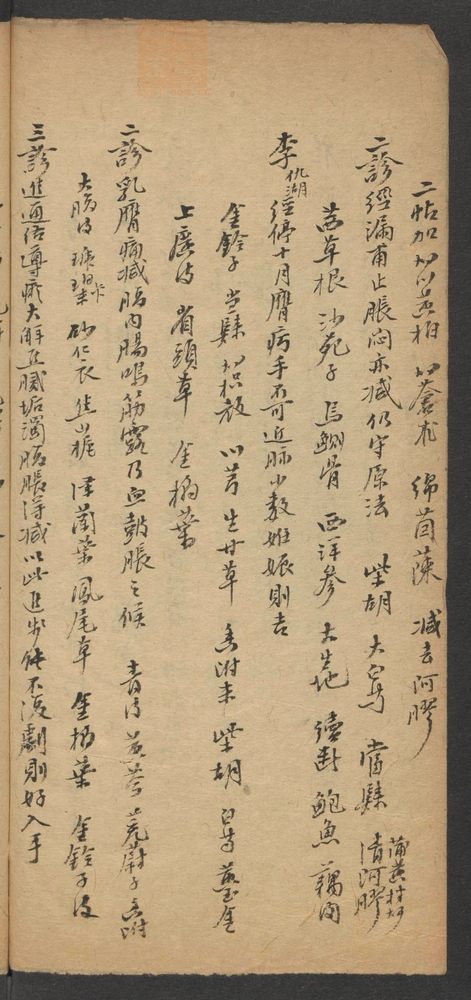 二帖加 炒黄柏 炒蒼朮 綿茵陳 減去阿膠
二診經漏甫止脹悶亦減仍守原法 柴胡 大白芍 當歸 清阿膠 蒲黃拌炒
茜草根 沙苑子 烏鰂骨 西洋參 大生地 續斷 鮑魚 藕肉
李 仇湖 經停十月膺病手不可近脉小數姙娠則吉
金鈴子 當歸 炒枳殼 川芎 生甘草 香附末 柴胡 白芍 黃
上廣皮 省頭草 金橘葉
二診乳膺痛減腸內腸鳴筋露乃血鼓脹之候 青皮 黃芩 茺蔚子 香附
大腹皮 琥珀 砂仁衣 焦山梔 澤蘭葉 鳳尾草 金橘葉 金鈴子皮
三診進通佐導瘀大解垢濁脹得減以此進步能不復劇則好入手